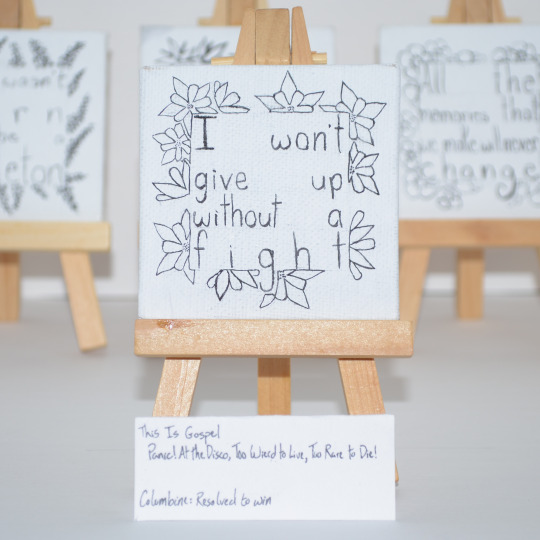 I won't
give up
without a
fight
This Is Gospel
Panic! At the Disco, Too Weird to Live, Too Rare to Die!
Columbine: Resolved to win
wasn't
r n
a
leton
All the
memories that
we make will never
change